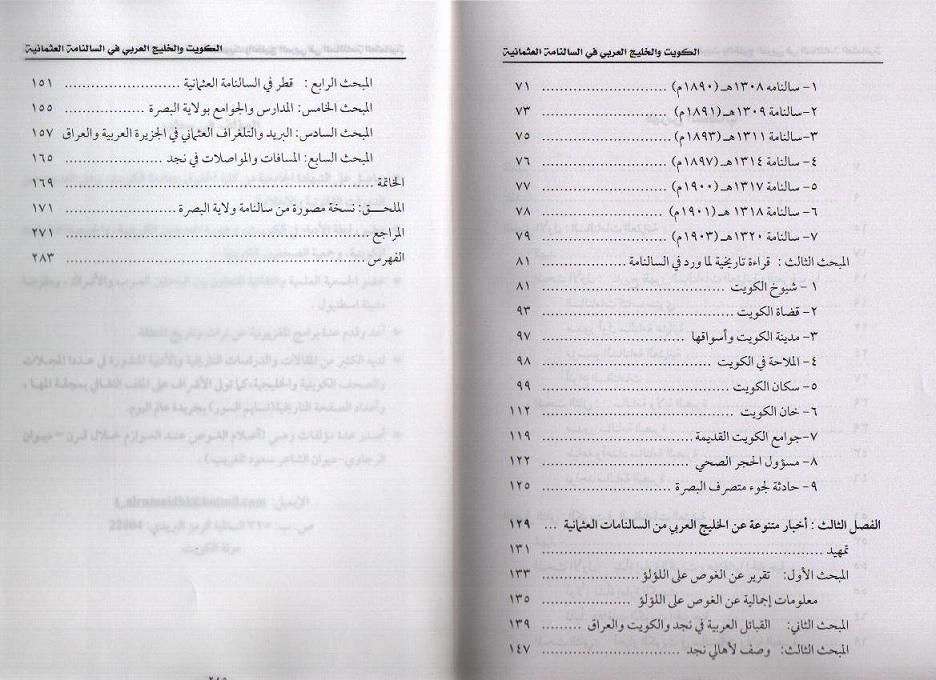 الكويت والخليج العربي في السالنامة العثمانية
١- سالنامه ١٣٠٨هـ (١٨٩٠م) ........................ ٧١
٢- سالنامة ١٣٠٩هـ (١٨٩١م) ........................ ٧٣
٣- سالنامة ١٣١١هـ (١٨٩٣م) ........................ ٧٥
٤- سالنامة ١٣١٤هـ (١٨٩٧م) ........................ ٧٦
٥- سالنامة ١٣١٧هـ (١٩٠٠م) ........................ ٧٧
٦- سالنامة ١٣١٨هـ (١٩٠١م) ........................ ٧٨
٧- سالنامة ١٣٢٠هـ (١٩٠٣م) ........................ ٧٩
المبحث الثالث : قراءة تاريخية لما ورد في السالنامة ............ ٨١
١ - شيوخ الكويت ........................ ٨١
٢- قضاة الكويت ........................ ٩٣
٣- مدينة الكويت وأسواقها ........................ ٩٧
٤- الملاحة في الكويت ........................ ٩٨
٥- سكان الكويت ........................ ٩٩
٦- خان الكويت ........................ ١١٢
٧-جوامع الكويت القديمة ........................ ١١٩
٨- مسؤول الحجر الصحي ........................ ١٢٢
٩- حادثة لجوء متصرف البصرة ........................ ١٢٥
الفصل الثالث : أخبار متنوعة عن الخليج العربي من السالنامات العثمانية ... ١٢٩
تمهيد ........................ ١٣١
المبحث الأول: تقرير عن الغوص على اللؤلؤ ............ ١٣٣
معلومات إجمالية عن الغوص على اللؤلؤ ............ ١٣٥
المبحث الثاني: القبائل العربية في نجد والكويت والعراق ......... ١٣٩
المبحث الثالث: وصف لأهالي نجد ........................ ١٤٧
الكويت والخليج العربي في السالنامة العثمانية
المبحث الرابع : قطر في السالنامة العثمانية ........................ ١٥١
المبحث الخامس: المدارس والجوامع بولاية البصرة ............ ١٥٥
المبحث السادس: البريد والتلغراف العثماني في الجزيرة العربية والعراق ١٥٧
المبحث السابع: المسافات والمواصلات في نجد ............ ١٦٥
الخاتمة ........................ ١٦٩
الملحـــق: نسخة مصورة من سالنامة ولاية البصرة ............ ١٧١
المراجع ........................ ٢٧١
الفهرس ........................ ٢٨٣